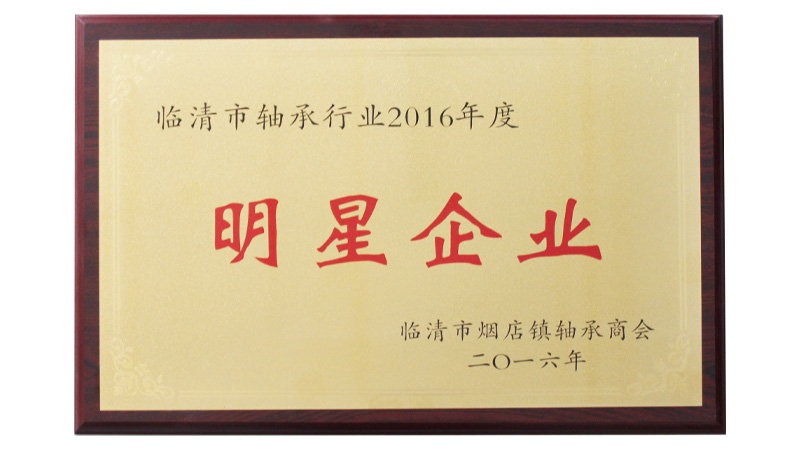 临清市轴承行业2016年度
明星企业
临清市烟店镇轴承商会
二〇一六年